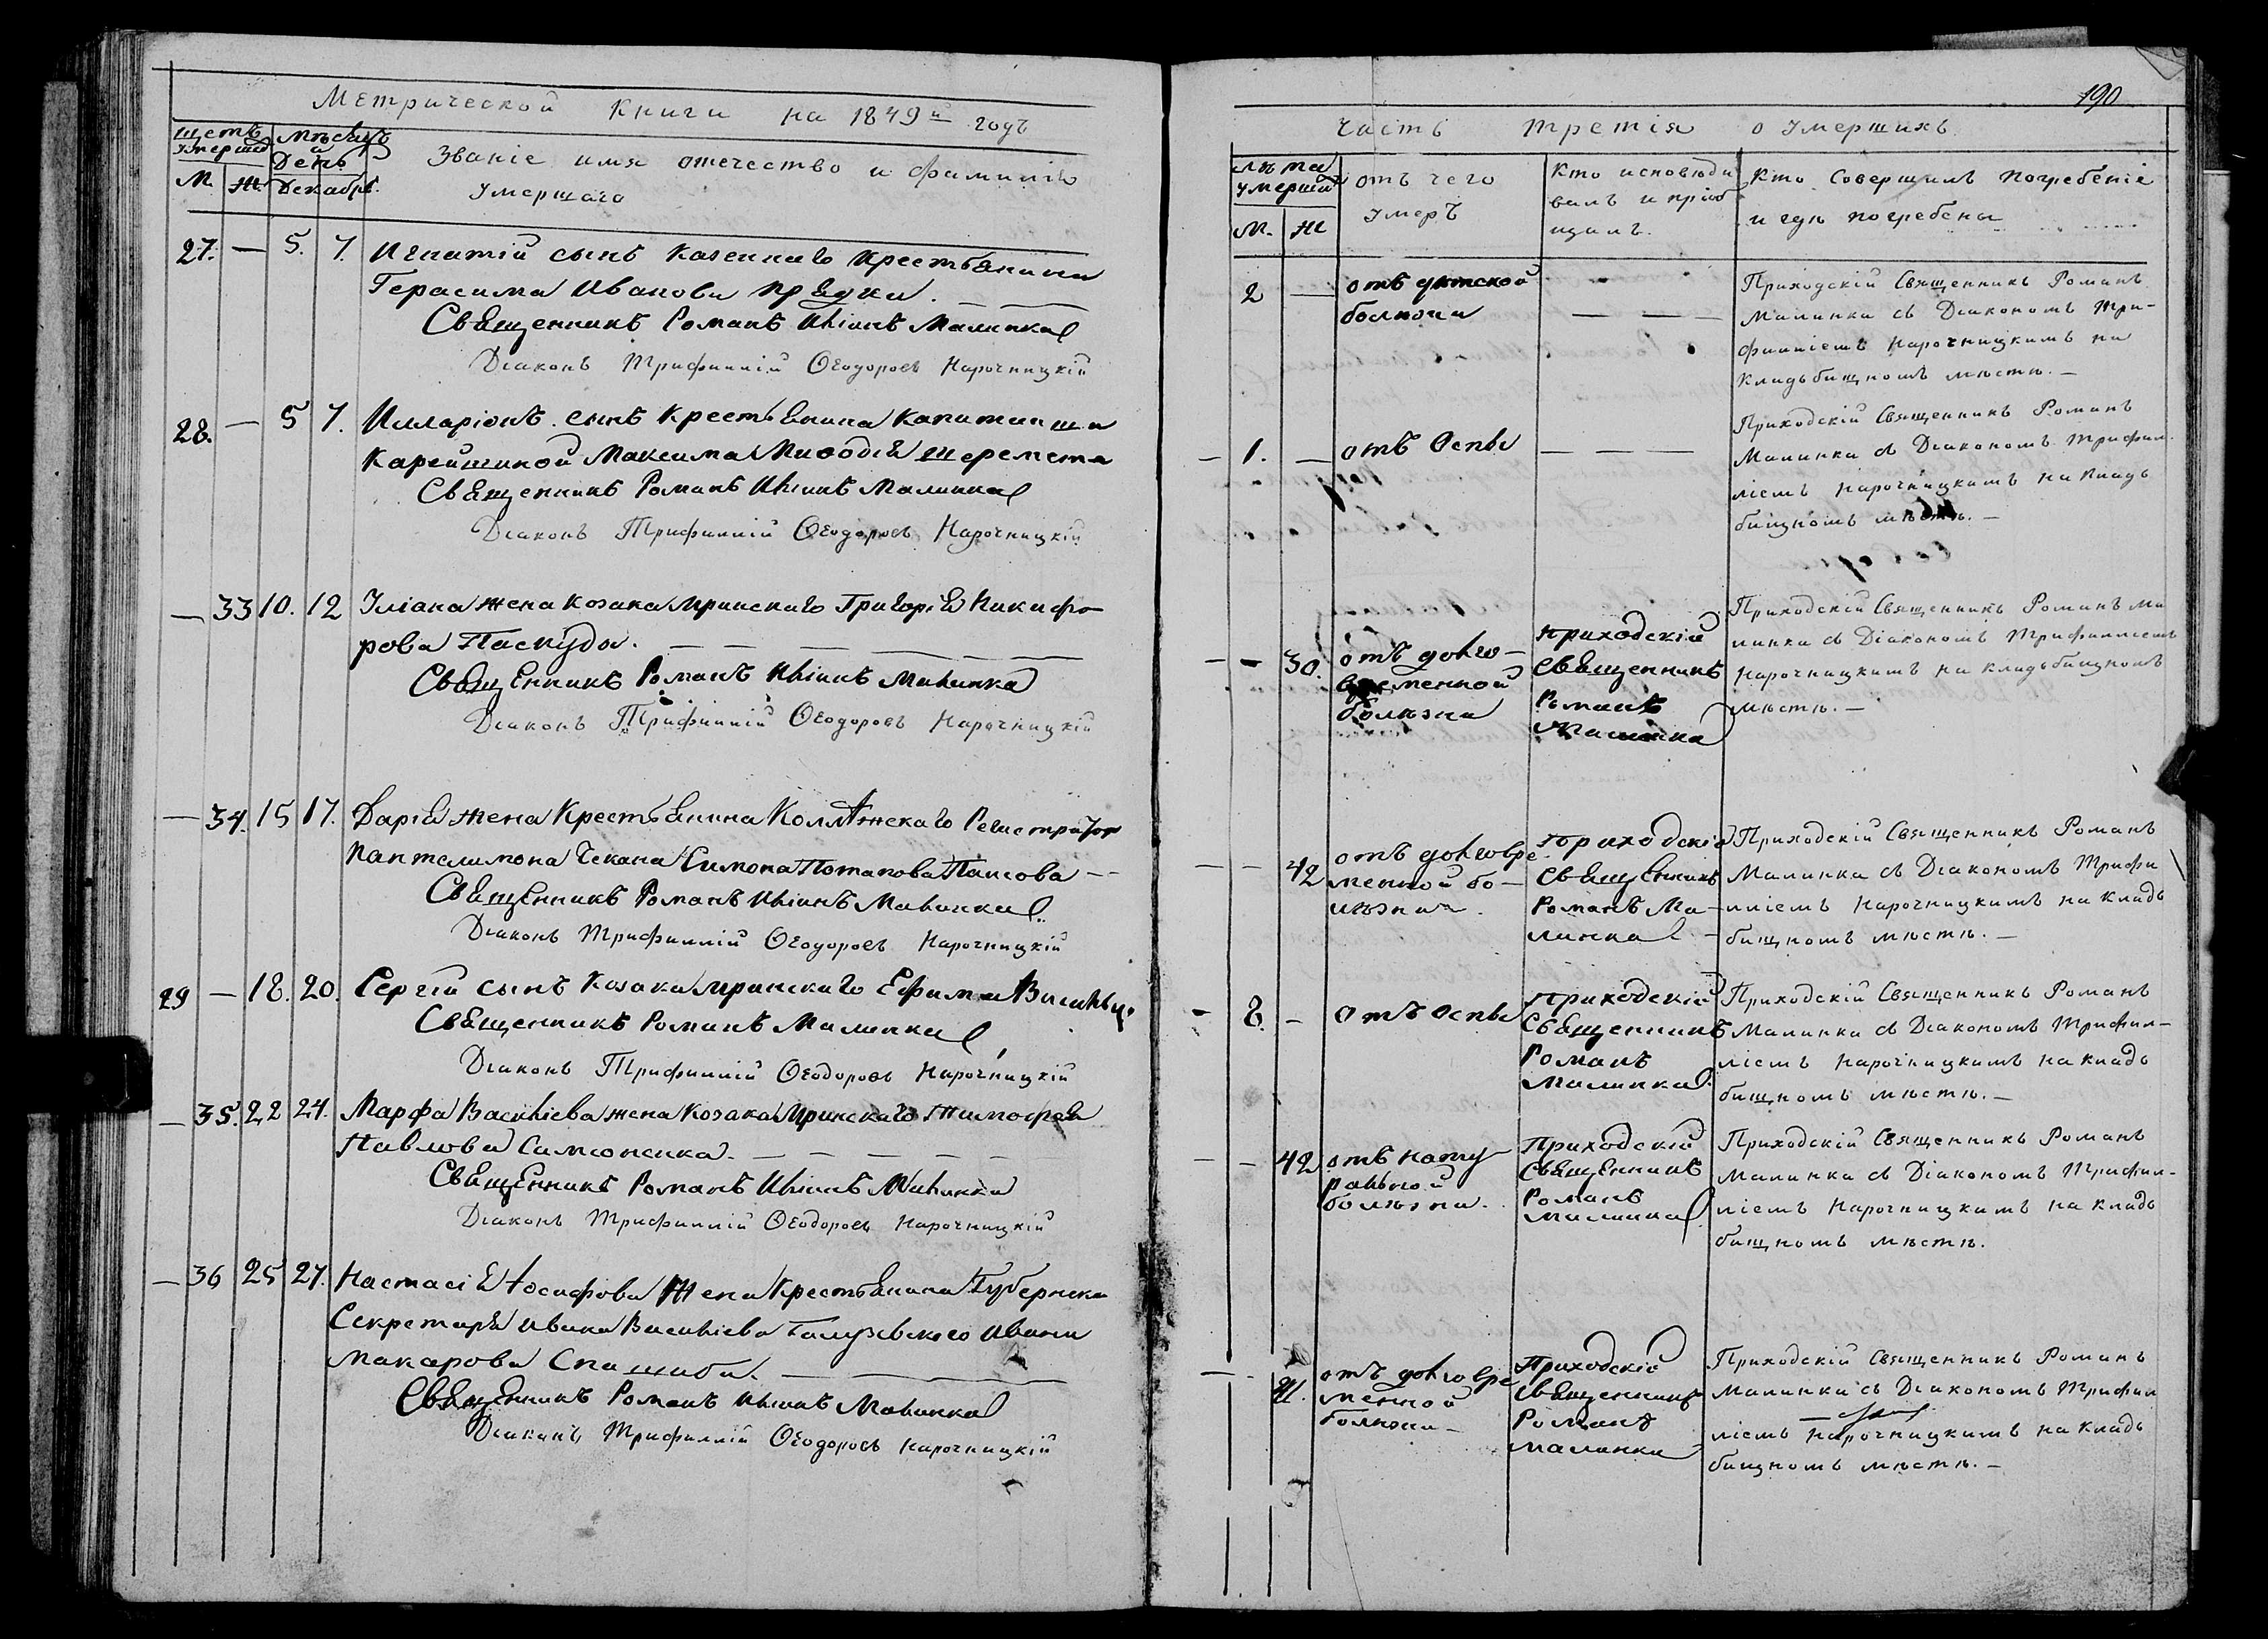 Метрической Книги на 1849й годъ
Щетъ умершихъ
Мѣсяцъ и День
Званіе имя отечество и фамилію
умершаго
М. Ж. Декабрь.
27. — 5. 7. Игнатій сынъ казеннаго крестьянина
Герасима Иванова
Священникъ Романъ Маминка
Діаконъ Трифиллій Ѳеодоровъ Нарочницкій
28. — 5 7. Илларіонъ сынъ крестьянина капитанши
Карейшиной Максима Миѳодія Шеремета
Священникъ Романъ Малинка
Діаконъ Трифиллій Ѳеодоровъ Нарочницкій
— 33 10. 12 Уліана жена козака мринскаго Григорія Никифо
рова Паскуды.
Священникъ Романъ Малинка
Діаконъ Трифиллій Ѳеодоровъ Нарочницкій
— 34. 15 17. Дарія жена крестьянина Коллѣжскаго Регистратор
Пантелимона Чекана Симона Потапова
Священникъ Романъ Малинка
Діаконъ Трифиллій Ѳеодоровъ Нарочницкій
29 — 18. 20. Сергій сынъ козака мринскаго Ефима
Священникъ Романъ Малинка
Діаконъ Трифиллій Ѳеодоровъ Нарочницкій
— 35. 22 24. Марфа Василіева жена козака мринскаго Тимофея
Павлова Самсоненка.
Священникъ Романъ Малинка
Діаконъ Трифиллій Ѳеодоровъ Нарочницкій
— 36 25 27. Настасія Іосифова жена крестьянина Губернска
Секретаря Ивана Василіева Ивана
Макарова
Священникъ Романъ Малинка
Діаконъ Трифиллій Ѳеодоровъ Нарочницкій
190
Часть третія о умершихъ
лѣта умерши
М. Ж
отъ чего
умеръ
Кто исповѣди
валъ и пріоб
щалъ.
Кто совершилъ погребеніе
и гдѣ погребены
2 —
отъ дѣтской
болѣзни
— — —
Приходскій Священникъ Романъ
Малинка съ Діакономъ Три-
филліемъ Нарочницкимъ на
кладьбищномъ мѣстѣ. —
— 1. —
отъ Оспы
— — —
Приходскій Священникъ Романъ
Малинка съ Діакономъ Трифил
ліемъ Нарочницкимъ на кладь
бищномъ мѣстѣ. —
— — 30.
отъ долго-
временной
болѣзни
приходскій
Священникъ
Романъ
Малинка
Приходскій Священникъ Романъ Ма
линка съ Діакономъ Трифилліемъ
Нарочницкимъ на кладьбищномъ
мѣстѣ. —
— — 42
отъ долговре
менной бо-
лѣзни.
приходскій
Священникъ
Романъ Ма-
линка
Приходскій Священникъ Романъ
Малинка съ Діакономъ Трифи
лліемъ Нарочницкимъ на кладь
бищномъ мѣстѣ. —
— 8. —
отъ Оспы
приходскій
Священникъ
Романъ
Малинка
Приходскій Священникъ Романъ
Малинка съ Діакономъ Трифил-
ліемъ Нарочницкимъ на кладь
бищномъ мѣстѣ. —
— — 42
отъ нату
ральной
болѣзни.
Приходскій
Священникъ
Романъ
Малинка
Приходскій Священникъ Романъ
Малинка съ Діакономъ Трифил-
ліемъ Нарочницкимъ на кладь
бищномъ мѣстѣ.
отъ долговре
менной
болѣзни —
Приходскій
Священникъ
Романъ
Малинка
Приходскій Священникъ Романъ
Малинка съ Діакономъ Трифил
ліемъ Нарочницкимъ на кладь
бищномъ мѣстѣ. —